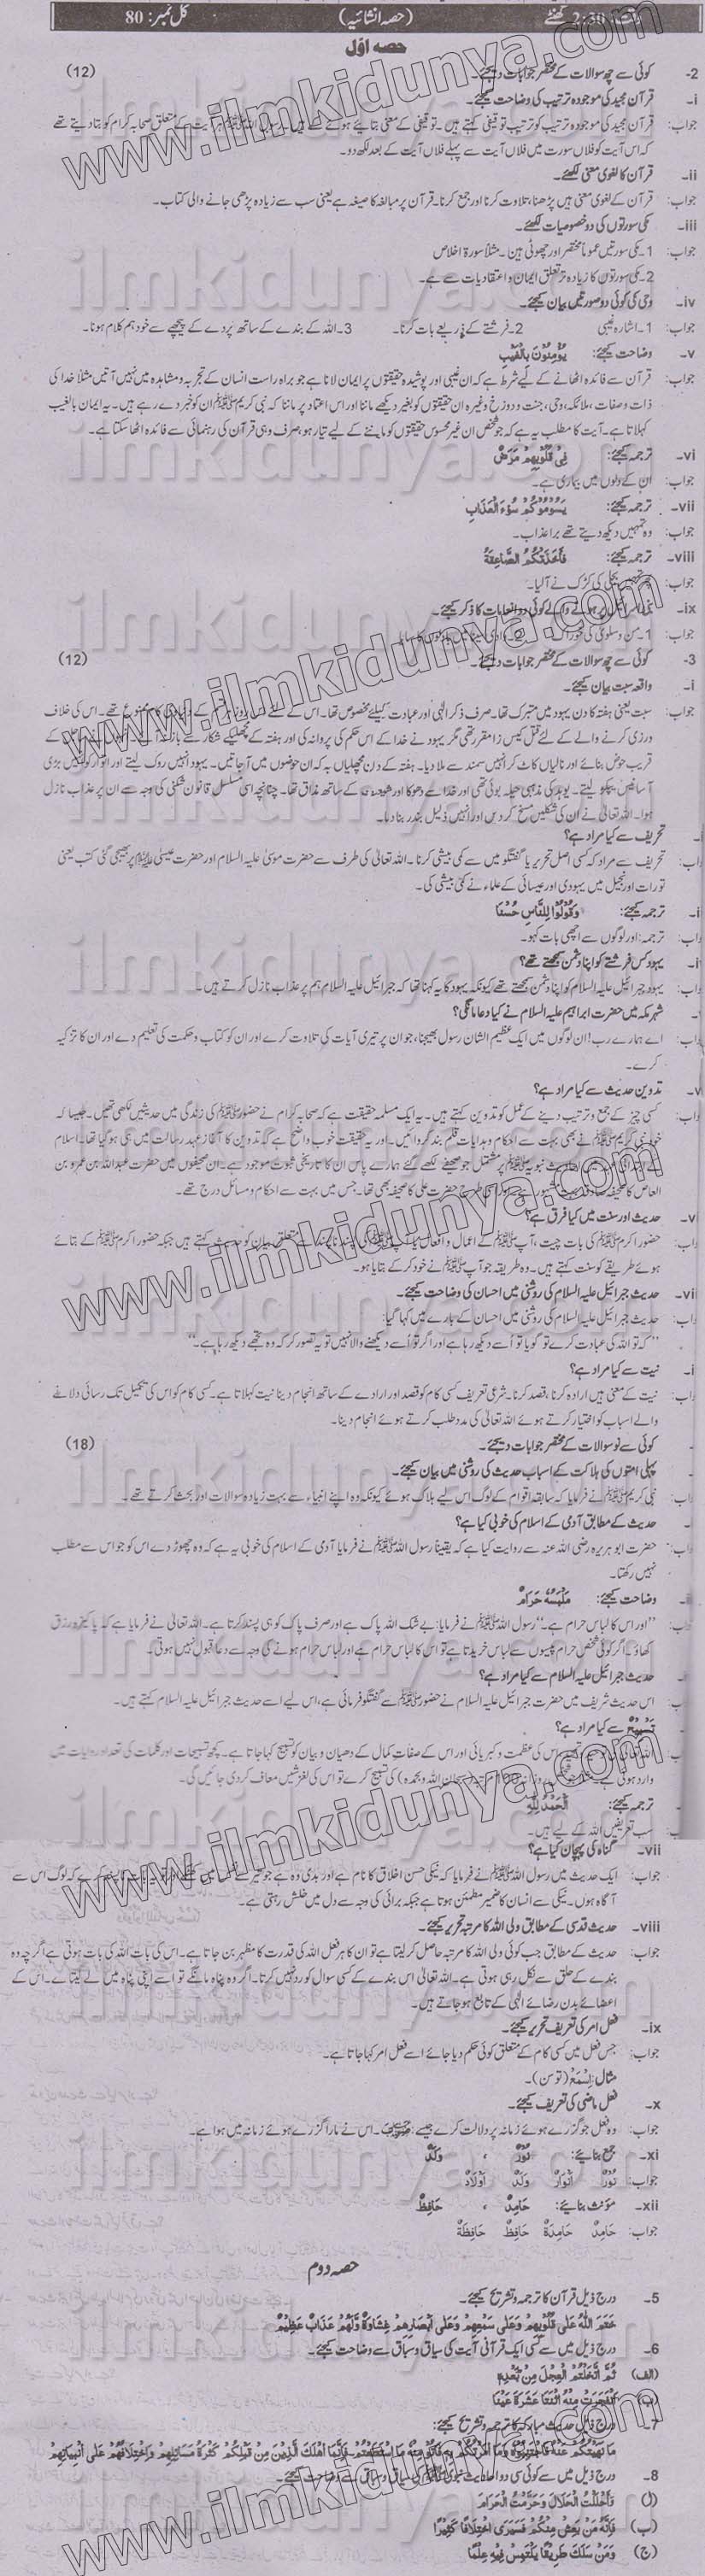 وقت: 2:30 گھنٹے (حصہ انشائیہ) کل نمبر: 80
حصہ اوّل
2- کوئی سے چھ سوالات کے مختصر جوابات دیجئے۔ (12)
i- قرآن مجید کی موجودہ ترتیب کی وضاحت کیجئے۔
جواب: قرآن مجید کی موجودہ ترتیب کو ترتیب توقیفی کہتے ہیں۔ توقیفی کے معنی بتایئے ہوئے کے ہیں۔ رسول اللہ ﷺ ہر آیت کے متعلق صحابہ کرام کو بتا دیتے تھے
کہ اس آیت کو فلاں سورت میں فلاں آیت سے پہلے فلاں آیت کے بعد لکھ دو۔
ii- قرآن کا لغوی معنی لکھئے۔
جواب: قرآن کے لغوی معنی ہیں پڑھنا، تلاوت کرنا اور جمع کرنا۔ قرآن پر مبالغہ کا صیغہ ہے یعنی سب سے زیادہ پڑھی جانے والی کتاب۔
iii- مکی سورتوں کی دو خصوصیات لکھئے۔
جواب: 1۔ مکی سورتیں عموماً مختصر اور چھوٹی ہیں۔ مثلاً سورۃ اخلاص
2۔ مکی سورتوں کا زیادہ تر تعلق ایمان و اعتقادیات سے ہے۔
iv- وحی کی کوئی دو صورتیں بیان کیجئے۔
جواب: 1۔ اشارہ غیبی 2۔ فرشتے کے ذریعے بات کرنا۔ 3۔ اللہ کے بندے کے ساتھ پردے کے پیچھے سے خود ہم کلام ہونا۔
v- وضاحت کیجئے: يُؤْمِنُوْنَ بِالْغَيْبِ
جواب: قرآن سے فائدہ اٹھانے کے لیے شرط ہے کہ ان غیبی اور پوشیدہ حقیقتوں پر ایمان لانا ہے جو براہ راست انسان کے تجربہ و مشاہدہ میں نہیں آتیں مثلاً خدا کی
ذات و صفات، ملائکہ، وحی، جنت و دوزخ وغیرہ ان حقیقتوں کو بغیر دیکھے ماننا اور اس اعتماد پر ماننا کہ نبی کریم ﷺ ان کو خبر دے رہے ہیں۔ یہ ایمان بالغیب
کہلاتا ہے۔ آیت کا مطلب یہ ہے کہ جو شخص ان غیر محسوس حقیقتوں کو ماننے کے لیے تیار ہو، صرف وہی قرآن کی رہنمائی سے فائدہ اٹھا سکتا ہے۔
vi- ترجمہ کیجئے: فِیْ قُلُوْبِهِمْ مَرَضٌ
جواب: ان کے دلوں میں بیماری ہے۔
vii- ترجمہ کیجئے: يَسُوْمُوْنَكُمْ سُوْءَ الْعَذَابِ
جواب: وہ تمہیں دکھ دیتے تھے برا عذاب۔
viii- ترجمہ کیجئے: فَاَخَذَتْكُمُ الصَّاعِقَةُ
جواب: تمہیں بجلی کی کڑک نے آ لیا۔
ix- بنی اسرائیل پر ہونے والے کوئی دو انعامات کا ذکر کیجئے۔
جواب: 1۔ من و سلویٰ کی خوراک 2۔ وادی سینا میں بادلوں کا سایا
3- کوئی سے چھ سوالات کے مختصر جوابات دیجئے۔ (12)
i- واقعہ سبت بیان کیجئے۔
جواب: سبت یعنی ہفتہ کا دن یہود میں متبرک تھا۔ صرف ذکر الٰہی اور عبادت کیلئے مخصوص تھا۔ اس کے لئے اس روز ممنوع تھے۔ اس کی خلاف
ورزی کرنے والے کے لئے قتل کیس زا مقرر تھی مگر یہود نے خدا کے اس حکم کی پروا نہ کی اور ہفتہ کے مچھلیکے شکار سے باز نہ کے
قریب حوض بنائے اور نالیاں کاٹ کر انہیں سمندر سے ملا دیا۔ ہفتہ کے دن مچھلیاں بہہ کہ ان حوضوں میں آ جاتیں۔ یہود انہیں روک لیتے اور اتوار کو انہیں بڑی
آسانیں پکو لیتے۔ مذہبی حیلہ تھی اور خدا سے دھوکا اور شریعت کے ساتھ مذاق تھا۔ چنانچہ اسی مسلسل قانون شکنی کی وجہ سے ان پر عذاب نازل
ہوا۔ اللہ تعالیٰ نے ان کی شکلیں مسخ کر دیں اور انہیں ذلیل بندر بنا دیا۔
تحریف سے کیا مراد ہے؟
تحریف سے مراد کہ کسی اصل تحریر یا گفتگو میں سے کمی بیشی کرنا۔ اللہ تعالیٰ کی طرف سے حضرت موسیٰ علیہ السلام اور حضرت عیسیٰ ﷺ پر بھیجی گئی کتب یعنی
تورات اور نجیل میں یہودی اور عیسائی کے علماء نے کمی بیشی کی۔
ترجمہ کیجئے: وَقُوْلُوْا لِلنَّاسِ حُسْنًا
ترجمہ: اور لوگوں سے اچھی بات کہو۔
یہود کس فرشتے کو اپنا دشمن سمجھتے تھے؟
یہود جبرائیل علیہ السلام کو اپنا دشمن سمجھتے تھے کیونکہ یہود کا یہ کہنا تھا کہ جبرائیل علیہ السلام ہم پر عذاب نازل کرتے ہیں۔
شہر مکہ میں حضرت ابراہیم علیہ السلام نے کیا دعا مانگی؟
اے ہمارے رب! ان لوگوں میں ایک عظیم الشان رسول بھیجنا، جو ان پر تیری آیات کی تلاوت کرے اور ان کو کتاب و حکمت کی تعلیم دے اور ان کا تزکیہ
کرے۔
تدوین حدیث سے کیا مراد ہے؟
کسی چیز کے جمع و ترتیب دینے کے عمل کو تدوین کہتے ہیں۔ یہ ایک مسلمہ حقیقت ہے کہ صحابہ کرام نے حضور ﷺ کی زندگی میں حدیثیں لکھی تھیں۔ جیسا کہ
خود نبی کریم ﷺ نے بھی بہت سے احکام و ہدایات قلم بند کروائیں۔ اور یہ حقیقت خوب واضح ہے کہ تدوین کا آغاز عہد رسالت میں ہی ہو گیا تھا۔ اسلام
کے احادیث نبویہ ﷺ پر مشتمل جو صحیفے لکھے گئے ہمارے پاس ان کا تاریخی ثبوت موجود ہے۔ ان صحیفوں میں حضرت عبداللہ بن عمرو بن
العاص کا صحیفہ اسی طرح حضرت علی کا صحیفہ بھی تھا۔ جس میں بہت سے احکام و مسائل درج تھے۔
حدیث اور سنت میں کیا فرق ہے؟
حضور اکرم ﷺ کی بات چیت، آپ ﷺ کے اعمال و افعال یا آپ ﷺ کی پسند ناپسند سے متعلق بیان کو حدیث کہتے ہیں جبکہ حضور اکرم ﷺ کے بتائے
ہوئے طریقے کو سنت کہتے ہیں۔ وہ طریقہ جو آپ ﷺ نے خود کر کے بتایا ہو۔
حدیث جبرائیل علیہ السلام کی روشنی میں احسان کی وضاحت کیجئے۔
حدیث جبرائیل علیہ السلام کی روشنی میں احسان کے بارے میں کہا گیا:
"کہ تو اللہ کی عبادت کرے تو گویا تو اُسے دیکھ رہا ہے اور اگر تو اُسے دیکھنے والا نہیں تو یہ تصور کر کہ وہ تجھے دیکھ رہا ہے۔"
نیت سے کیا مراد ہے؟
نیت کے معنی ہیں ارادہ کرنا، قصد کرنا۔ شرعی تعریف کسی کام کو قصد اور ارادے کے ساتھ انجام دینا نیت کہلاتا ہے۔ کسی کام کو اس کی تکمیل تک رسائی دلانے
والے اسباب کو اختیار کرتے ہوئے اللہ تعالیٰ کی مدد طلب کرتے ہوئے انجام دینا۔
کوئی سے نو سوالات کے مختصر جوابات دیجئے۔ (18)
پہلی امتوں کی ہلاکت کے اسباب حدیث کی روشنی میں بیان کیجئے۔
نبی کریم ﷺ نے فرمایا کہ سابقہ اقوام کے لوگ اس لیے ہلاک ہوئے کیونکہ وہ اپنے انبیاء سے بہت زیادہ سوالات اور بحث کرتے تھے۔
حدیث کے مطابق آدمی کے اسلام کی خوبی کیا ہے؟
حضرت ابو ہریرہ رضی اللہ عنہ سے روایت کیا ہے کہ یقیناً رسول اللہ ﷺ نے فرمایا آدمی کے اسلام کی خوبی یہ ہے کہ وہ چھوڑ دے اس کو جو اس سے مطلب
نہیں رکھتا۔
وضاحت کیجئے: مَلْبَسُهُ حَرَامٌ
"اور اس کا لباس حرام ہے۔" رسول اللہ ﷺ نے فرمایا: بے شک اللہ پاک ہے اور صرف پاک کو ہی پسند کرتا ہے۔ اللہ تعالیٰ نے فرمایا ہے کہ پاکیزہ رزق
کھاؤ۔ اگر کوئی شخص حرام پیسوں سے لباس خریدتا ہے تو اس کا لباس حرام ہے اور لباس حرام ہونے کی وجہ سے دعا قبول نہیں ہوتی۔
حدیث جبرائیل علیہ السلام سے کیا مراد ہے؟
اس حدیث شریف میں حضرت جبرائیل علیہ السلام نے حضور ﷺ سے گفتگو فرمائی ہے، اس لیے اسے حدیث جبرائیل علیہ السلام کہتے ہیں۔
تسبیح سے کیا مراد ہے؟
اس کی عظمت و کبریائی اور اس کے صفات کمال کے دھیان و بیان کو تسبیح کہا جاتا ہے۔ کچھ تسبیحات اور کلمات کی تعداد روایات میں
وارد ہوئی ہے۔ روزانہ 100 مرتبہ (سبحان اللہ وبحمدہ) کی تسبیح کرے تو اس کی لغزشیں معاف کر دی جائیں گی۔
ترجمہ کیجئے: اَلْحَمْدُ لِلّٰهِ
سب تعریفیں اللہ کے لیے ہیں۔
vii- گناہ کی پہچان کیا ہے؟
جواب: ایک حدیث میں رسول اللہ ﷺ نے فرمایا کہ نیکی حسن اخلاق کا نام ہے اور بدی وہ ہے جو تیرے کہ لوگ اس سے
آگاہ ہوں۔ نیکی سے انسان کا ضمیر مطمئن ہوتا ہے جبکہ برائی کی وجہ سے دل میں خلش رہتی ہے۔
viii- حدیث قدسی کے مطابق ولی اللہ کا مرتبہ تحریر کیجئے۔
جواب: حدیث کے مطابق جب کوئی ولی اللہ کا مرتبہ حاصل کر لیتا ہے تو ان کا ہر فعل اللہ کی قدرت کا مظہر بن جاتا ہے۔ اس کی بات اللہ کی بات ہوتی ہے اگرچہ وہ
بندے کے حلق سے نکل رہی ہوتی ہے۔ اللہ تعالیٰ اس بندے کے کسی سوال کو رد نہیں کرتا۔ اگر وہ پناہ مانگے تو اسے اپنی پناہ میں لے لیتا ہے۔ اس کے
اعضائے بدن رضائے الٰہی کے تابع ہو جاتے ہیں۔
ix- فعل امر کی تعریف تحریر کیجئے۔
جواب: جس فعل میں کسی کام کے متعلق کوئی حکم دیا جائے اسے فعل امر کہا جاتا ہے۔
مثال: اِسْمَعْ (تو سن)۔
x- فعل ماضی کی تعریف کیجئے۔
جواب: وہ فعل جو گزرے ہوئے زمانہ پر دلالت کرے جیسے: ضَرَبَ۔ اس نے مارا گزرے ہوئے زمانہ میں ہوا ہے۔
xi- جمع بنائیے: نُوْرٌ ، وَلَدٌ
جواب: نُوْرٌ اَنْوَارٌ وَلَدٌ اَوْلَادٌ
xii- مؤنث بنائیے: حَامِدٌ ، حَافِظٌ
جواب: حَامِدٌ حَامِدَةٌ حَافِظٌ حَافِظَةٌ
حصہ دوم
5- درج ذیل قرآن کا ترجمہ و تشریح کیجئے۔
خَتَمَ اللّٰهُ عَلٰى قُلُوْبِهِمْ وَعَلٰى سَمْعِهِمْ وَعَلٰى اَبْصَارِهِمْ غِشَاوَةٌ وَّلَهُمْ عَذَابٌ عَظِيْمٌ
6- درج ذیل میں سے کسی ایک قرآنی آیت کی سیاق و سباق سے وضاحت کیجئے۔
(الف) ثُمَّ اتَّخَذْتُمُ الْعِجْلَ مِنْ بَعْدِهٖ
(ب) فَانْفَجَرَتْ مِنْهُ اثْنَتَا عَشْرَةَ عَيْنًا
7- درج ذیل حدیث مبارکہ کا ترجمہ و تشریح کیجئے:
مَا نَهَيْتُكُمْ عَنْهُ فَاجْتَنِبُوْهُ وَمَا اَمَرْتُكُمْ بِهٖ فَأْتُوْا مِنْهُ مَا اسْتَطَعْتُمْ فَاِنَّمَا اَهْلَكَ الَّذِيْنَ مِنْ قَبْلِكُمْ كَثْرَةُ مَسَائِلِهِمْ وَاخْتِلَافُهُمْ عَلٰى اَنْبِيَائِهِمْ
8- درج ذیل میں سے کوئی سی دو احادیث نبوی ﷺ کی سیاق و سباق سے وضاحت کیجئے۔
(ا) وَاَحْلَلْتُ الْحَلَالَ وَحَرَّمْتُ الْحَرَامَ
(ب) فَاِنَّهٗ مَنْ يَعِشْ مِنْكُمْ فَسَيَرَى اخْتِلَافًا كَثِيْرًا
(ج) وَمَنْ سَلَكَ طَرِيْقًا يَلْتَمِسُ فِيْهِ عِلْمًا
www.ilmkidunya.com